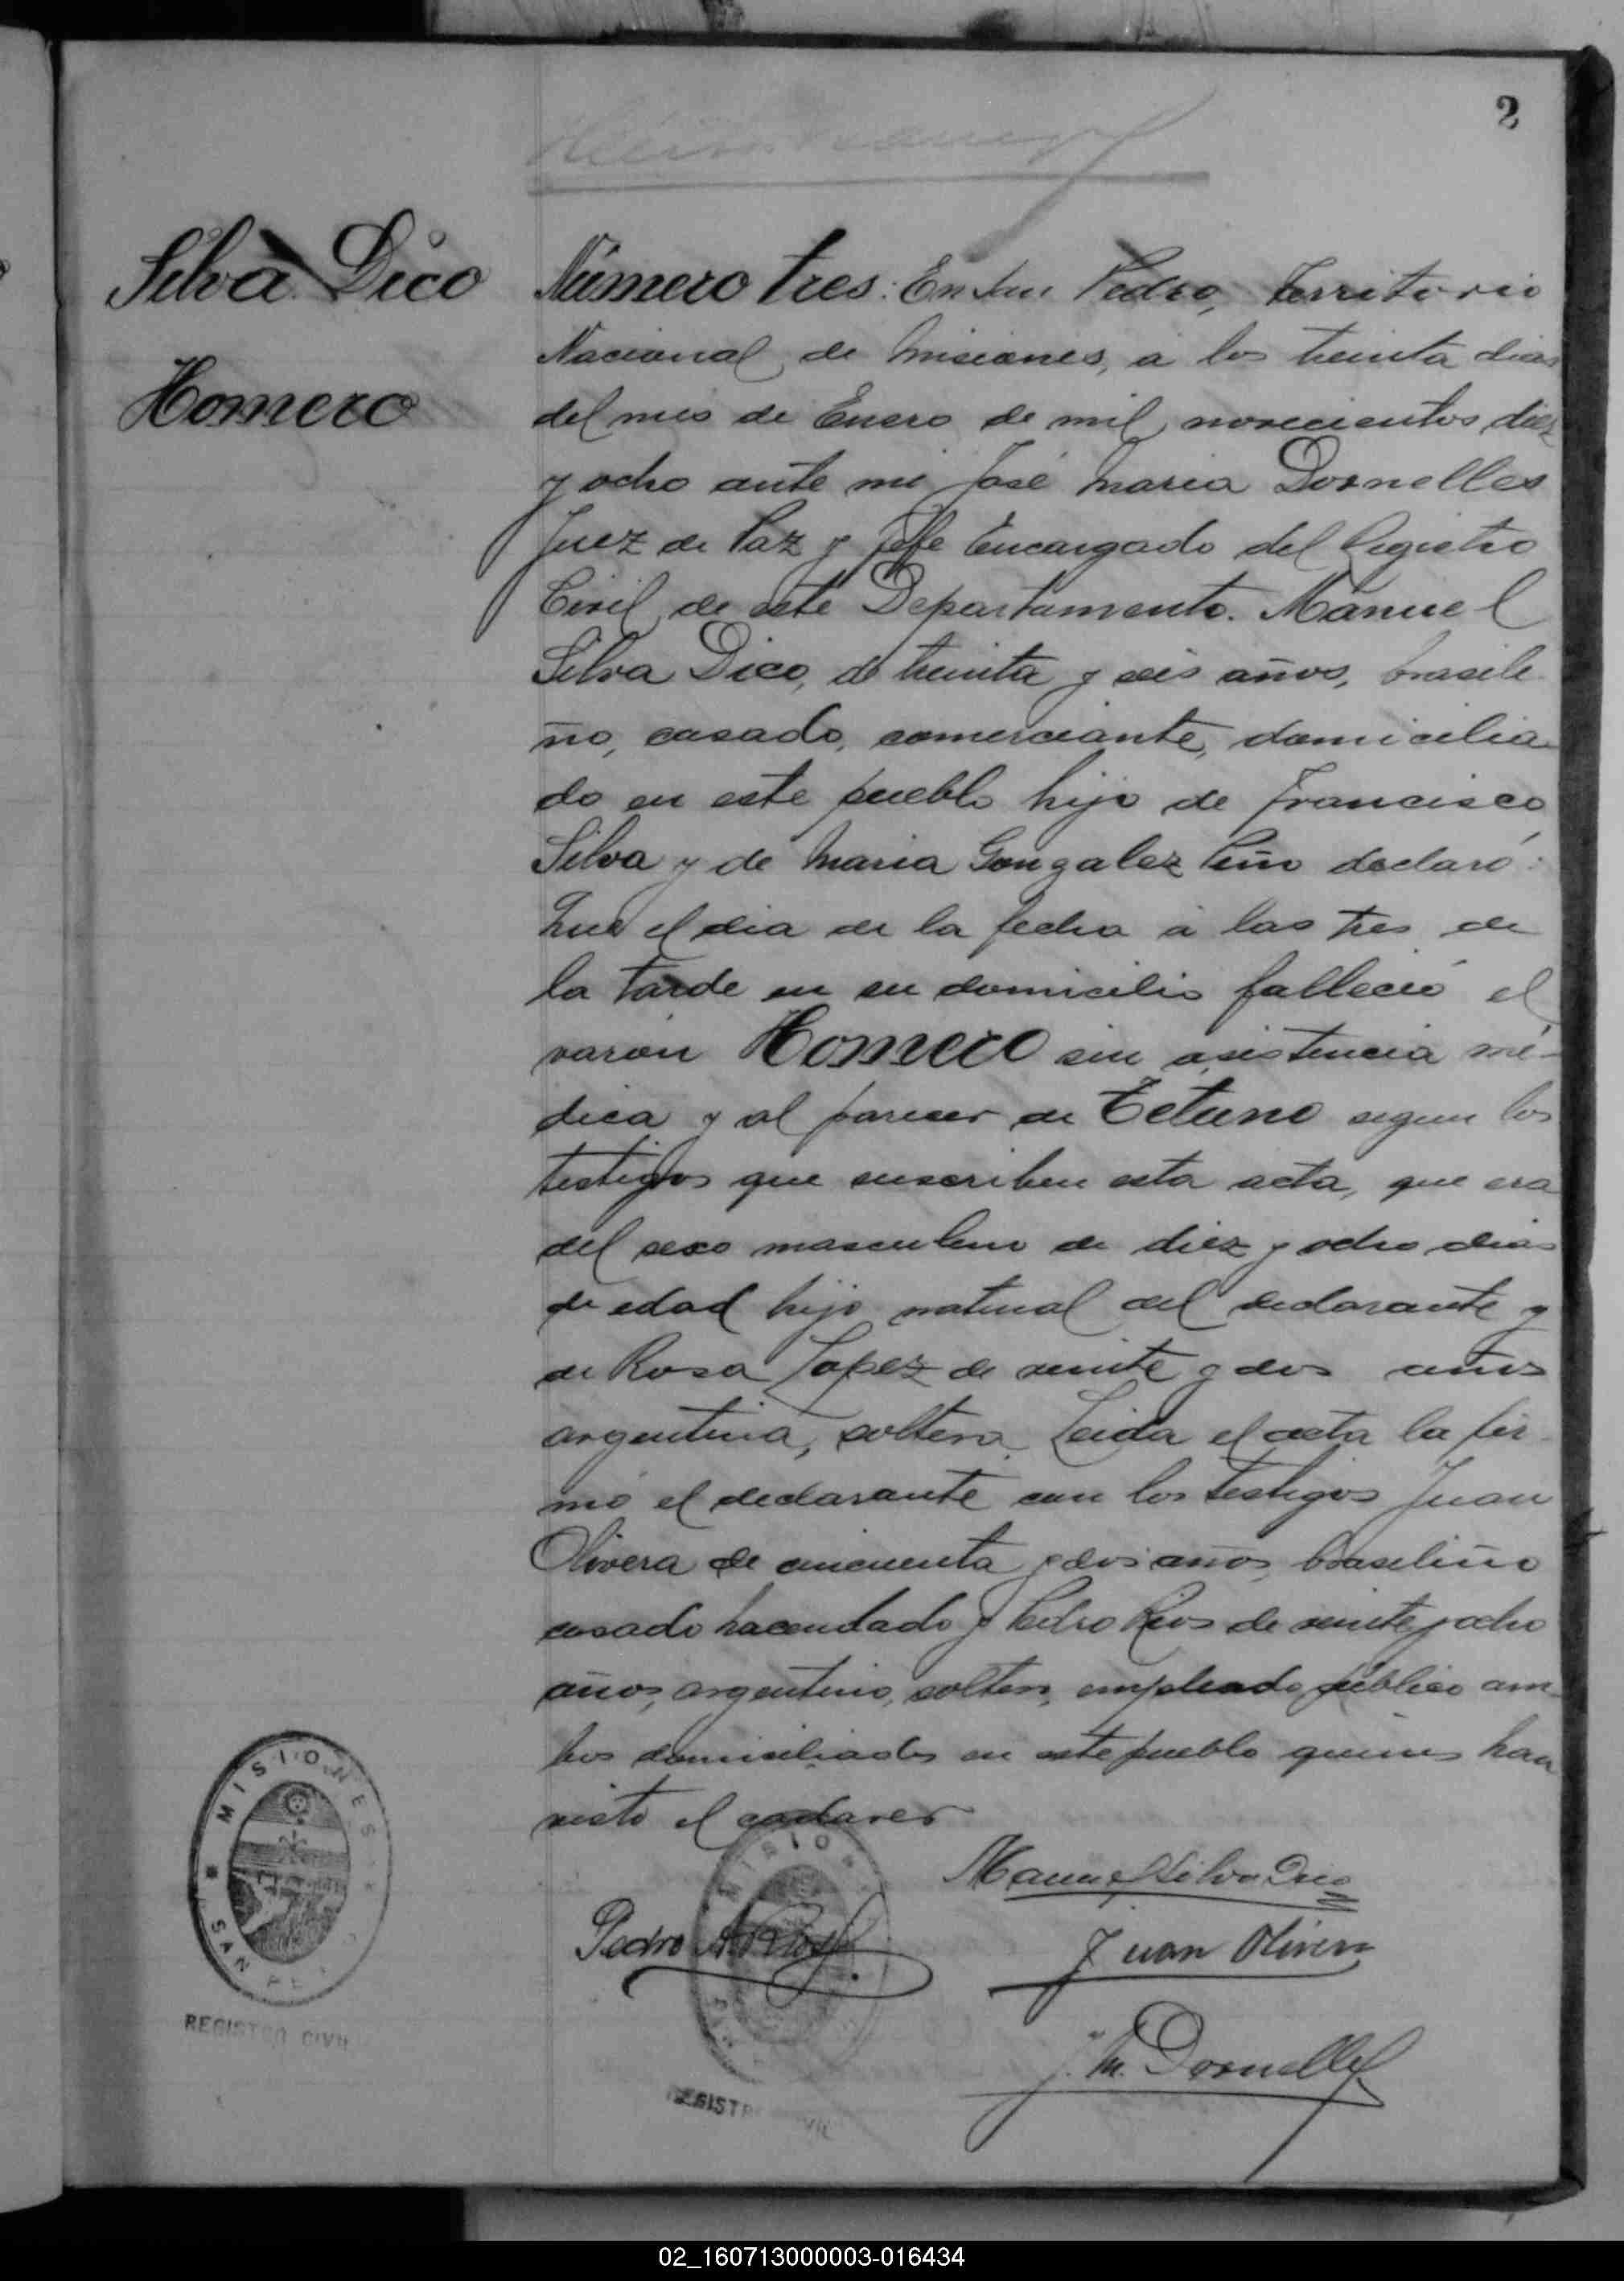 2
Silva Dico
Homero
Número tres: En San Pedro, Territorio
Nacional de Misiones, a los treinta dias
del mes de Enero de mil novecientos diez
y ocho ante mi José Maria Dornelles
Juez de Paz y Jefe Encargado del Registro
Civil de este Departamento. Manuel
Silva Dico, de treinta y seis años, brasile
ño, casado, comerciante, domicilia
do en este pueblo hijo de Francisco
Silva y de Maria Gonzalez declaró:
Que el dia de la fecha a las tres de
la tarde en su domicilio falleció el
varón Homero sin asistencia mé-
dica y al parecer de Tetano segun los
testigos que suscriben esta acta, que era
del sexo masculino de diez y ocho dias
de edad hijo natural del declarante y
de Rosa Lopez de veinte y dos años
argentina, soltera. Leida el acta la fir
mó el declarante con los testigos Juan
Olivera de cincuenta y dos años, brasileño
casado hacendado y Pedro Rios de veinte y ocho
años, argentino, soltero, empleado público am
bos domiciliados en este pueblo quienes han
visto el cadaver
Manuel Silva Dico
Pedro A. Rios
Juan Olivera
J. M. Dornelles
MISIONES
SAN PE
REGISTRO CIVIL
MISION
REGISTR VIL
02_160713000003-016434